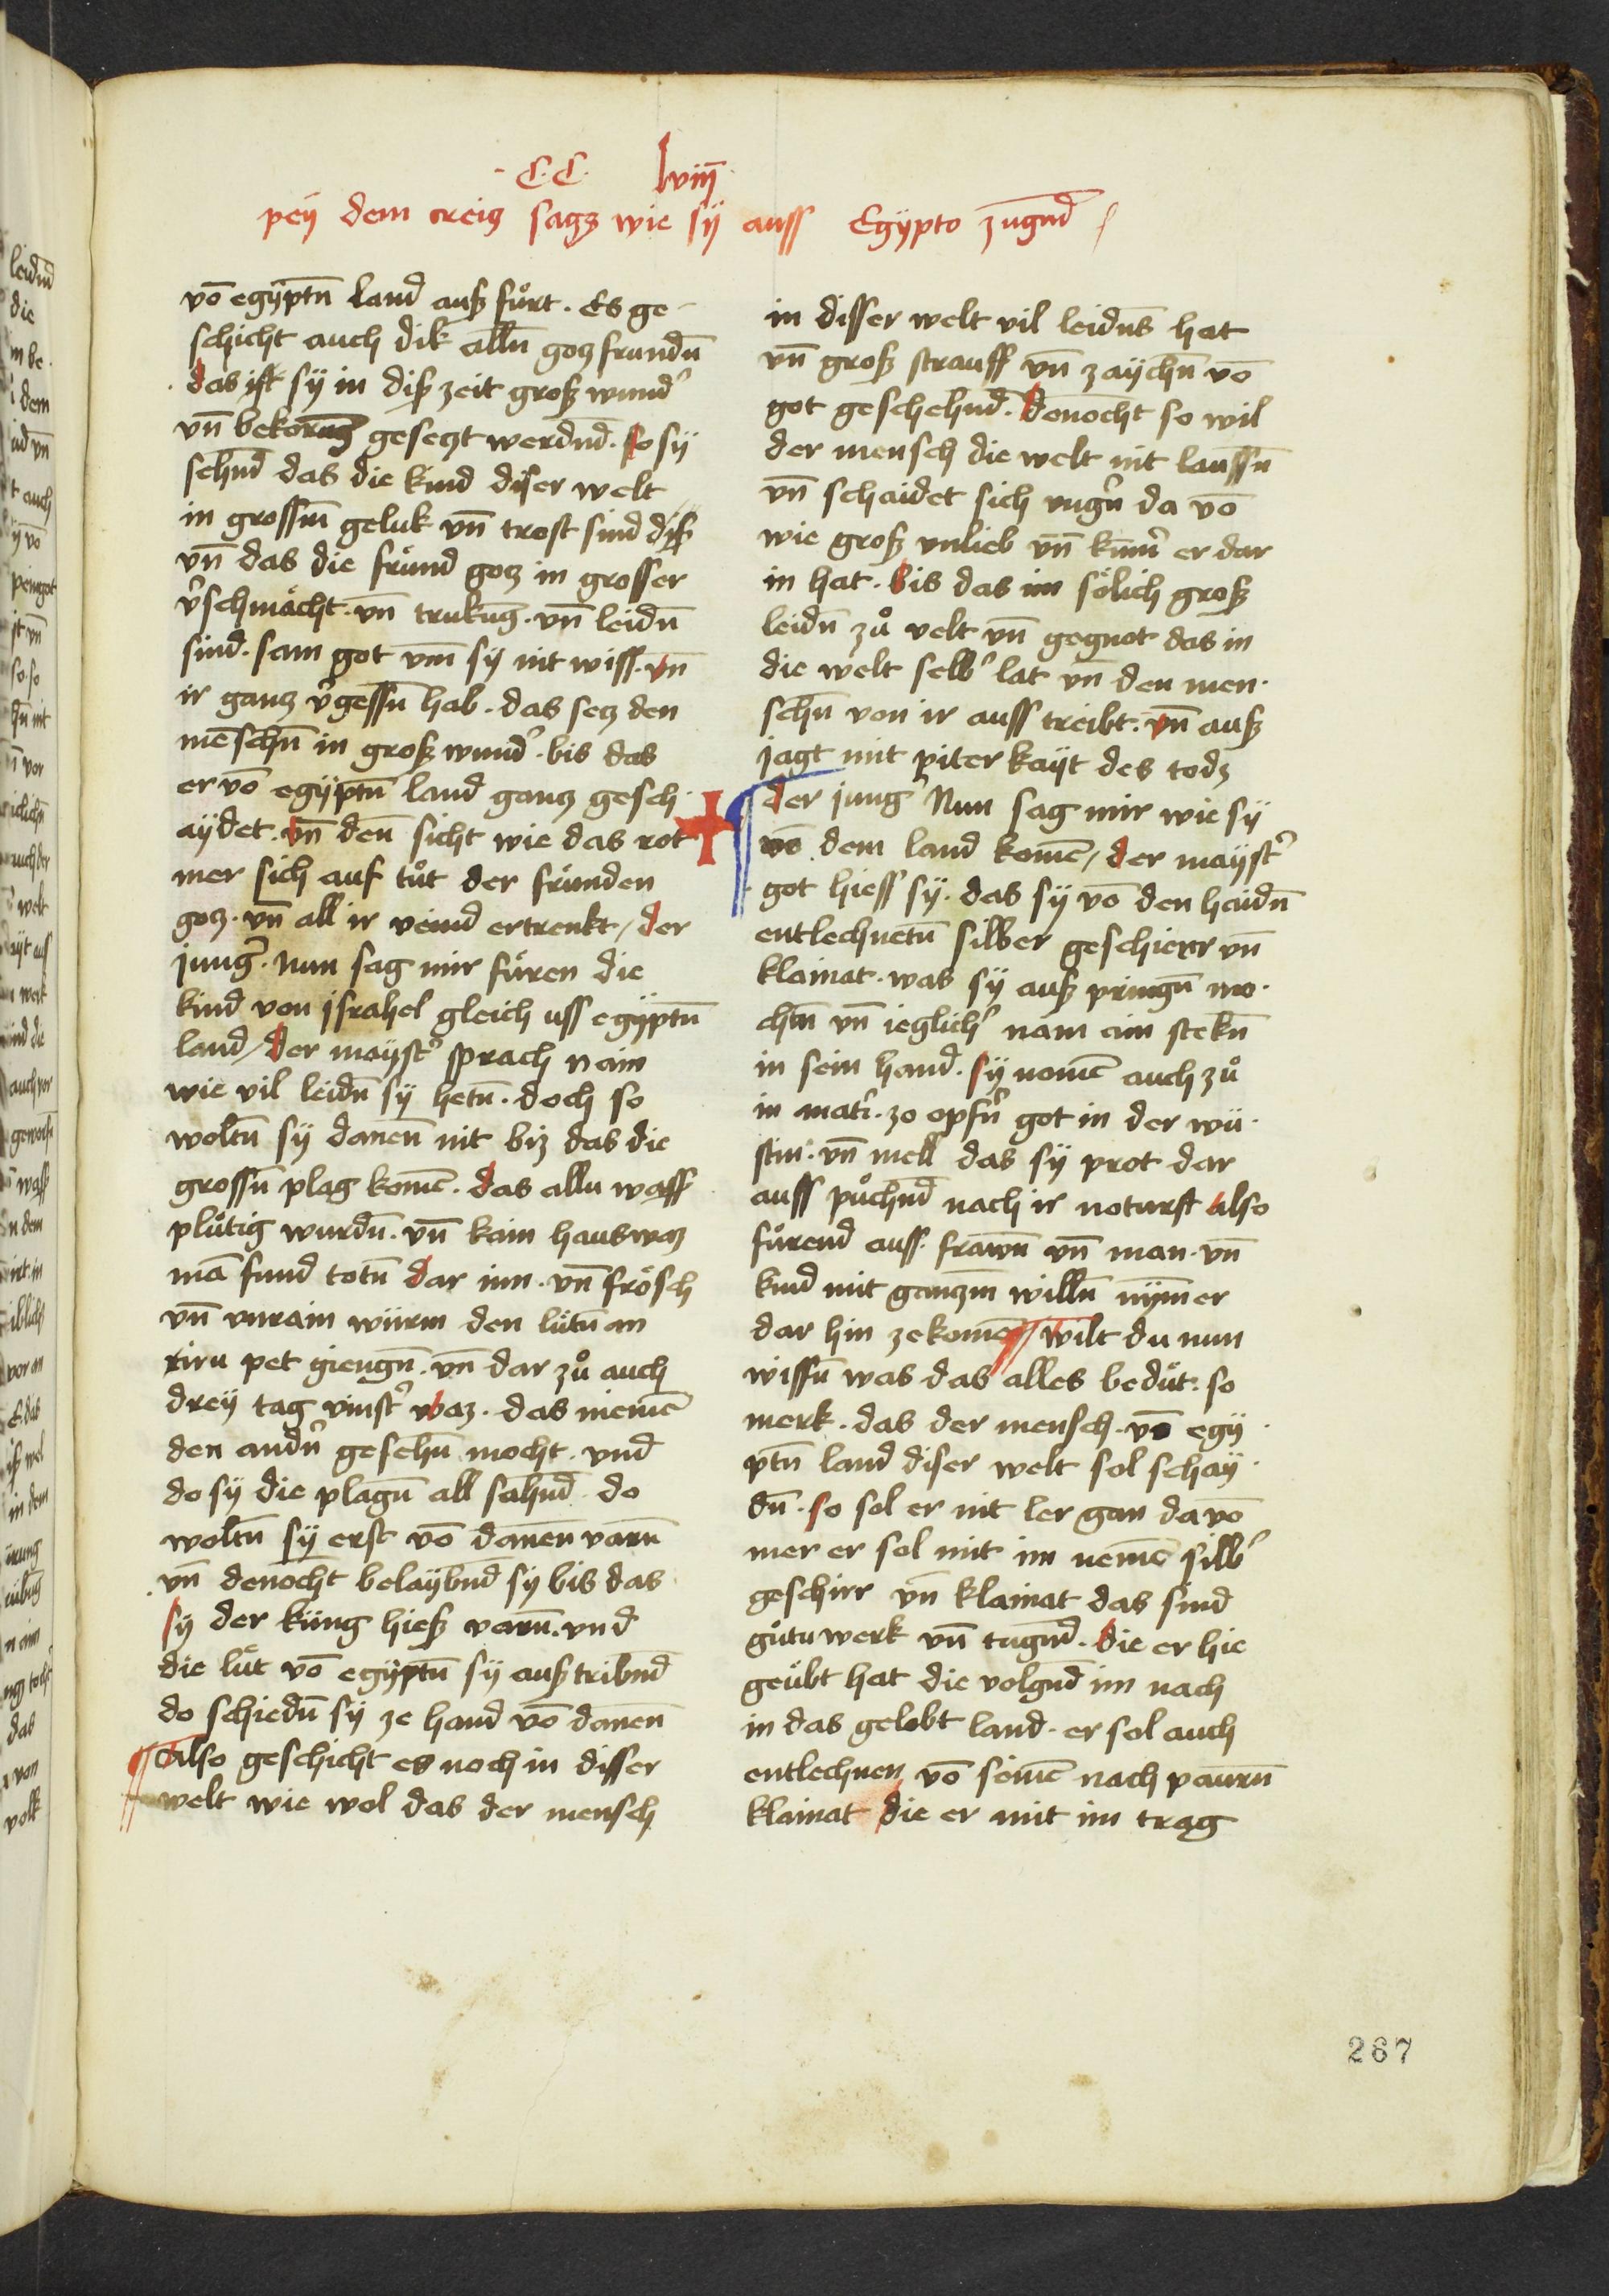 C.C. lviiij
peÿ dem creicz sagz wie sÿ auss Egÿpto zugnd
vō egÿptn̄ land ausz fürt. Es ge-
schicht auch dik alln̄ gocz frundn̄
das ist sÿ in disz zeit grosz wund̾
vn̄ bekorūg geseczt werdnd. so sÿ
sehnd das die kind diser welt
in grossm̄ geluk vn̄ trost sind disz
vn̄ das die fründ gocz in grosser
v̾schmächt. vn̄ trukūg. vn̄ leidn̄
sind. sam got vm̄ sÿ nit wiss. vn̄
ir gancz v̾gessn̄ hab. das secz den
mēschn̄ in grosz wund̾. bis das
er vō egÿptn̄ land gancz gesch-
aÿdet. vn̄ den̄ sicht wie das rot
mer sich auf tůt der fründen
gocz. vn̄ all ir veind ertrenkt / der
jung̾. Nun sag mir füren die
kind von jsrahel gleich uss egÿptn̄
land / der maÿst̾ sprach nain
wie vil leidn̄ sÿ hetn̄. doch so
woltn̄ sÿ danen̄ nit biz das die
grossn̄ plag komē. das allu wass̾
plůtig wurdn̄. vn̄ kain haus waz
mā fund totn̄ dar inn. vn̄ frösch
vn̄ vnrain würm den lütn̄ an
iru pet giengn̄. vn̄ dar zů auch
dreÿ tag vinst̾ waz. das niemē
den andn̾ gesehn̄ mocht. vnd
do sÿ die plagn̄ all sahnd. do
woltn̄ sÿ erst vō danen̄ varn̄
vn̄ denocht belaÿbnd sÿ bis das
sÿ der küng hiesz varn̄. vnd
die lüt vō egÿptn̄ sÿ ausz tribnd
do schiedn̄ sÿ ze hand vō danen̄
¶ Also geschicht es noch in disser
welt wie wol das der mensch
in disser welt vil leidns̄ hat
vn̄ grosz strauff vn̄ zaÿchn̄ vō
got geschehnd. denocht so wil
der mensch die welt nit laussn̄
vn̄ schaidet sich vngn̾ da vō
wie grosz vnlieb vn̄ kūm̾ er dar
in hat. bis das im sölich grosz
leidn̄ zů velt vn̄ gegnot das in
die welt selb̾ lat vn̄ den men-
schn̄ von ir auss treibt. vn̄ ausz
jagt mit piterkaÿt des todz
¶ der jung̾ Nun sag mir wie sÿ
vō dem land komē / der maÿst̾
got hiess sÿ. das sÿ vō den haidn̄
entlechnetn̄ silber geschierr vn̄
klainat. was sÿ ausz pringn̄ mo-
chtn̄ vn̄ ieglich̾ nam ain stekn̄
in sein hand. sÿ nomē auch zů
in mat̾i. zo opfn̾ got in der wü-
stin. vn̄ mell das sÿ prot dar
auss půchnd nach ir noturft also
fürend auss. frawn̄ vn̄ man. vn̄
kind mit ganczm̄ willn̄ nÿmer
dar hin ze komē ¶ wilt du nun
wissn̄ was das alles bedüt. so
merk. das der mensch. vō egÿ-
ptn̄ land diser welt sol schaÿ-
dn̄. so sol er nit ler gan da vō
mer er sol mit im nemē silb̾
geschirr vn̄ klainat das sind
gůtu werk vn̄ tugnd. die er hie
geübt hat die volgnd im nach
in das gelobt land. er sol auch
entlechnen vō seinē nach paurn̄
klainat die er mit im trag
267